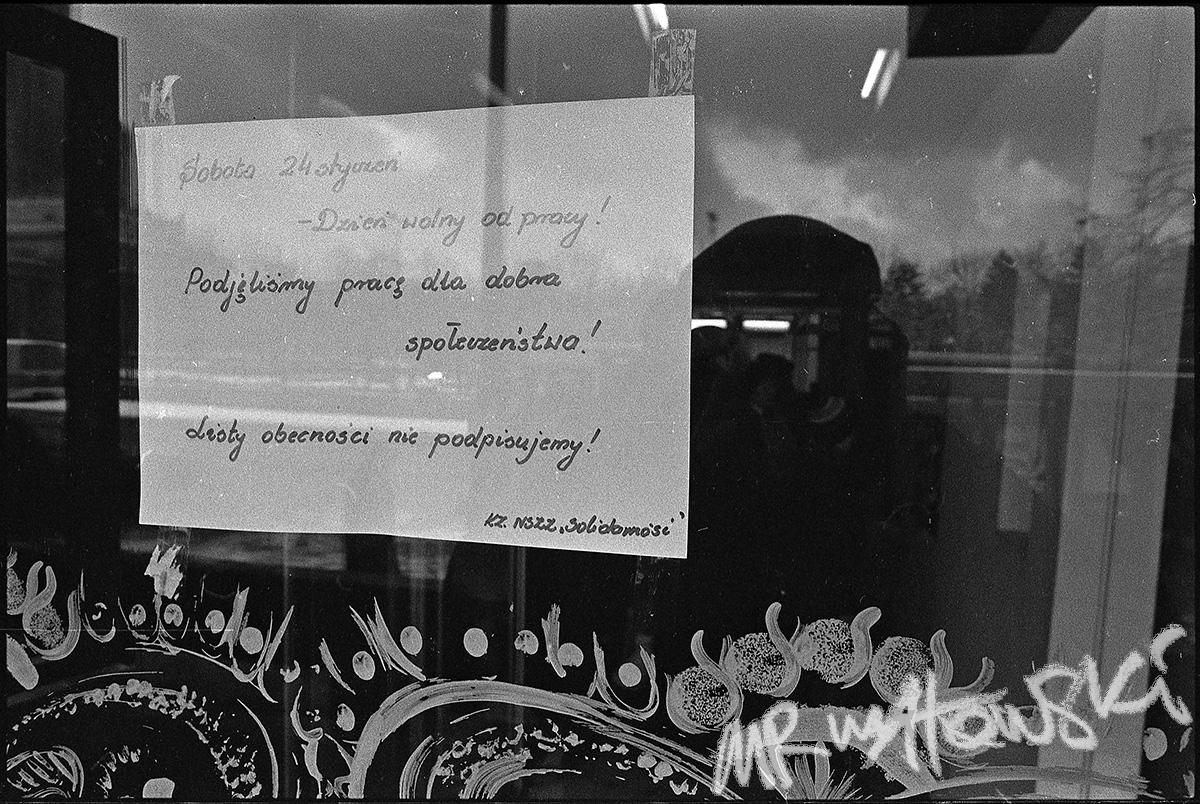 Sobota 24 styczeń
-Dzień wolny od pracy!
Podjęliśmy pracę dla dobra
społeczeństwa!
Listy obecności nie podpisujemy!
KZ. NSZZ „Solidarność"
MP. Wyltowski